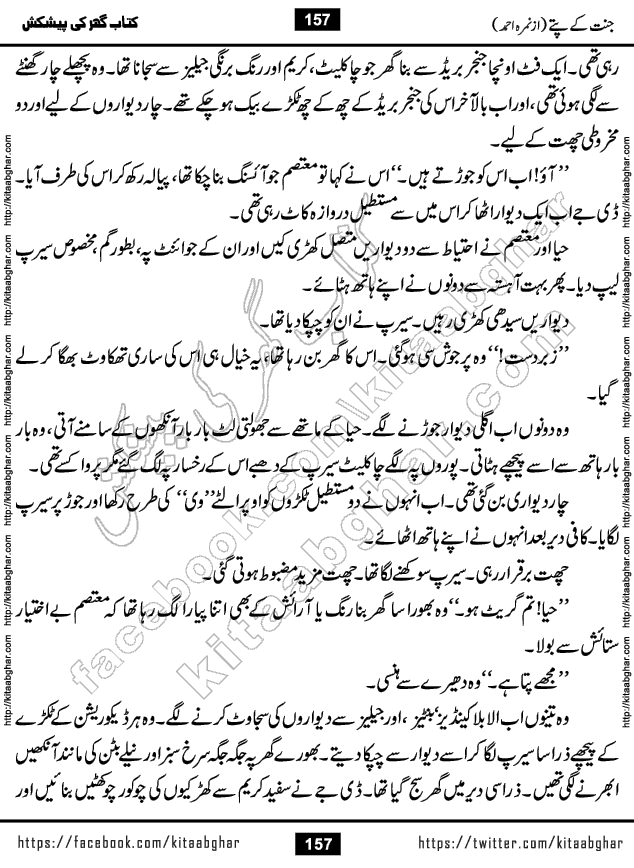 جنت کے پتے (از نمرہ احمد)
157
کتاب گھر کی پیشکش
رہی تھی۔ ایک فٹ اونچا جنجر بریڈ سے بنا گھر جو چاکلیٹ، کریم اور رنگ برنگی جیلیز سے سجانا تھا۔ وہ پچھلے چار گھنٹے
سے لگی ہوئی تھی، اور اب بالآخر اس کی جنجر بریڈ کے چھ کے چھ ٹکڑے بیک ہو چکے تھے۔ چار دیواروں کے لیے اور دو
مخروطی چھت کے لیے۔
’’آؤ! اب اس کو جوڑتے ہیں۔‘‘ اس نے کہا تو معتصم جو آئسنگ بنا چکا تھا، پیالہ رکھ کر اس کی طرف آیا۔
ڈی جے اب ایک دیوار اٹھا کر اس میں سے مستطیل دروازہ کاٹ رہی تھی۔
حیا اور معتصم نے احتیاط سے دو دیواریں متصل کھڑی کیں اور ان کے جوائنٹ پہ، بطور گم، مخصوص سیرپ
لیپ دیا۔ پھر بہت آہستہ سے دونوں نے اپنے ہاتھ ہٹائے۔
دیواریں سیدھی کھڑی رہیں۔ سیرپ نے ان کو چپکا دیا تھا۔
’’زبردست!‘‘ وہ پرجوش سی ہو گئی۔ اس کا گھر بن رہا تھا، یہ خیال ہی اس کی ساری تھکاوٹ بھگا کر لے
گیا۔
وہ دونوں اب اگلی دیوار جوڑنے لگے۔ حیا کے ماتھے سے جھولتی لٹ بار بار آنکھوں کے سامنے آتی، وہ بار
بار ہاتھ سے اسے پیچھے ہٹاتی۔ پوروں پہ لگے چاکلیٹ سیرپ کے دھبے اس کے رخسار پہ لگ گئے مگر پروا کسے تھی۔
چار دیواری بن گئی تھی۔ اب انہوں نے دو مستطیل ٹکڑوں کو اوپر الٹے ’’وی‘‘ کی طرح رکھا اور جوڑ پر سیرپ
لگایا۔ کافی دیر بعد انہوں نے اپنے ہاتھ اٹھائے۔
چھت برقرار رہی۔ سیرپ سوکھنے لگا تھا۔ چھت مزید مضبوط ہوتی گئی۔
’’حیا! تم گریٹ ہو۔‘‘ وہ بھورا سا گھر بنا رنگ یا آرائش کے بھی اتنا پیارا لگ رہا تھا کہ معتصم بے اختیار
ستائش سے بولا۔
’’مجھے پتا ہے۔‘‘ وہ دھیرے سے ہنسی۔
وہ تینوں اب الا بلا کینڈیز، بنٹیز، اور جیلیز سے دیواروں کی سجاوٹ کرنے لگے۔ وہ ہر ڈیکوریشن کے ٹکڑے
کے پیچھے ذرا سا سیرپ لگا کر اسے دیوار سے چپکا دیتے۔ بھورے گھر پہ جگہ جگہ سرخ سبز اور نیلے بٹن کی مانند آنکھیں
ابھرنے لگی تھیں۔ ذرا سی دیر میں گھر سج گیا تھا۔ ڈی جے نے سفید کریم سے کھڑکیوں کی چوکور چوکھٹیں بنائیں اور
http://kitaabghar.com http://kitaabghar.com http://kitaabghar.com http://kitaabghar.com http://kitaabghar.com http://kitaabghar.com
http://kitaabghar.com http://kitaabghar.com http://kitaabghar.com http://kitaabghar.com http://kitaabghar.com http://kitaabghar.com
کتاب گھر کی پیشکش
facebook.com\kitaabghar
kitaabghar.com
https://facebook.com/kitaabghar
157
https://twitter.com/kitaabghar